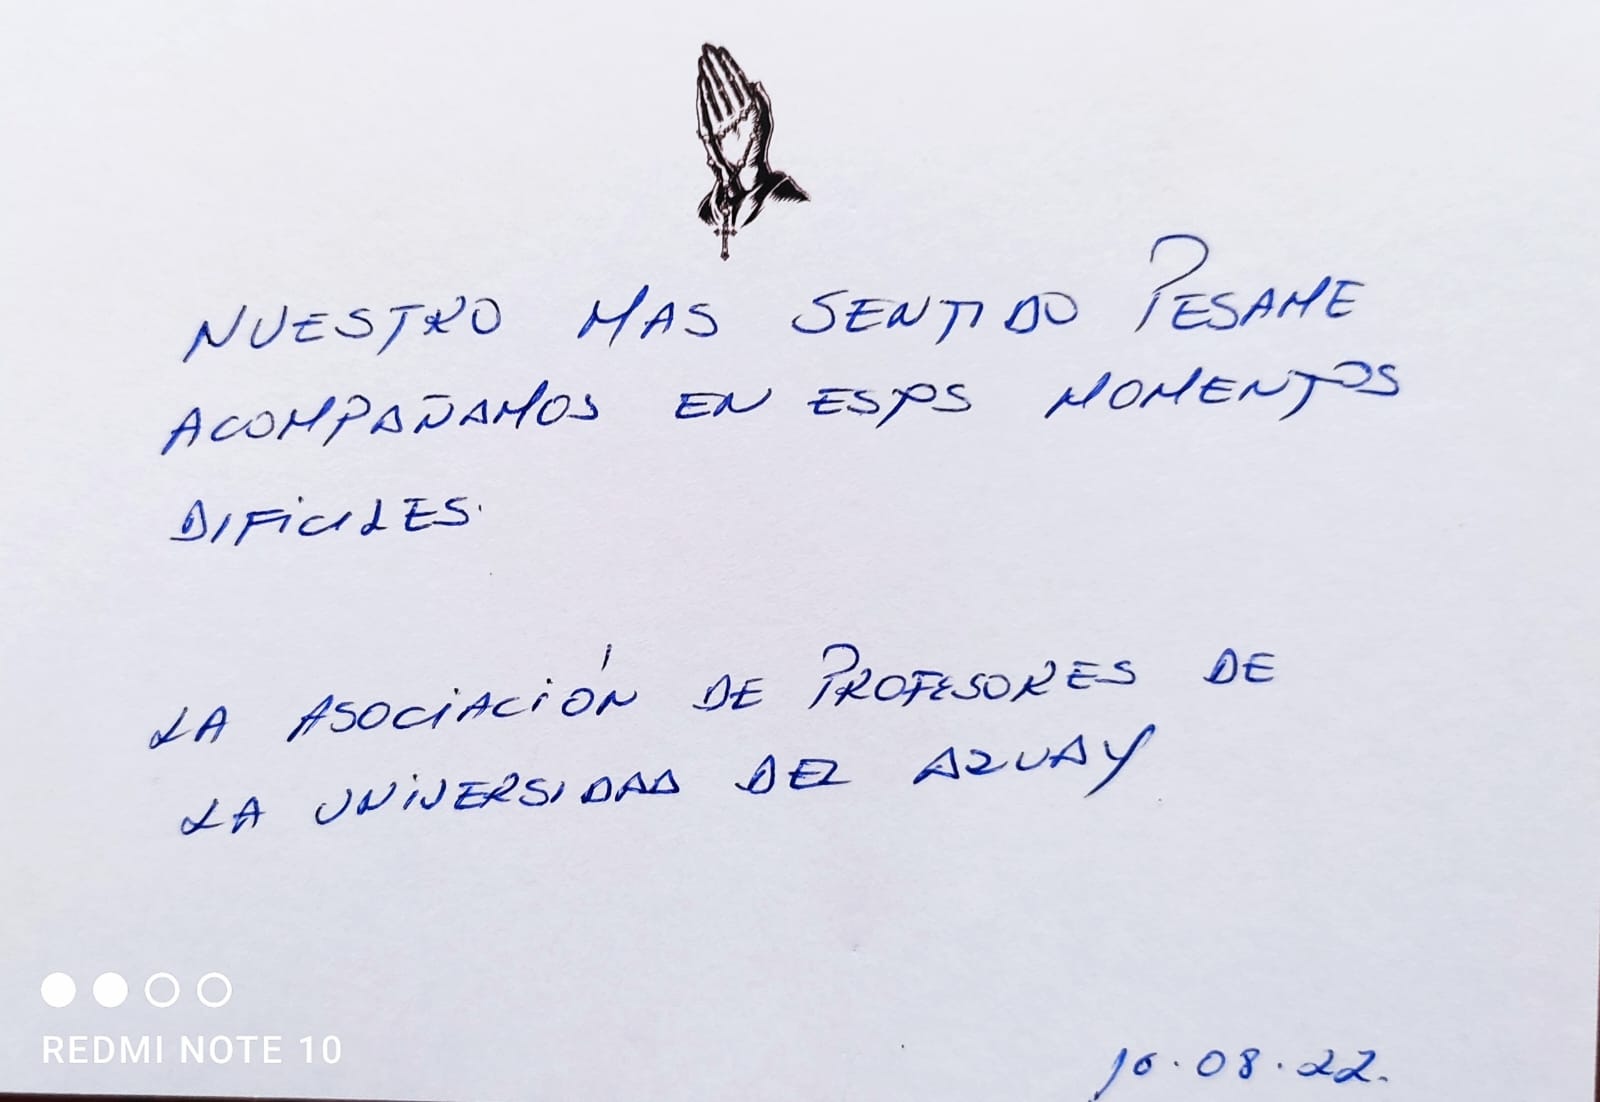 NUESTRO MAS SENTIDO PESAME
ACOMPAÑAMOS EN ESTOS MOMENTOS
DIFICILES.
LA ASOCIACIÓN DE PROFESORES DE
LA UNIVERSIDAD DEL AZUAY
REDMI NOTE 10
16.08.22.